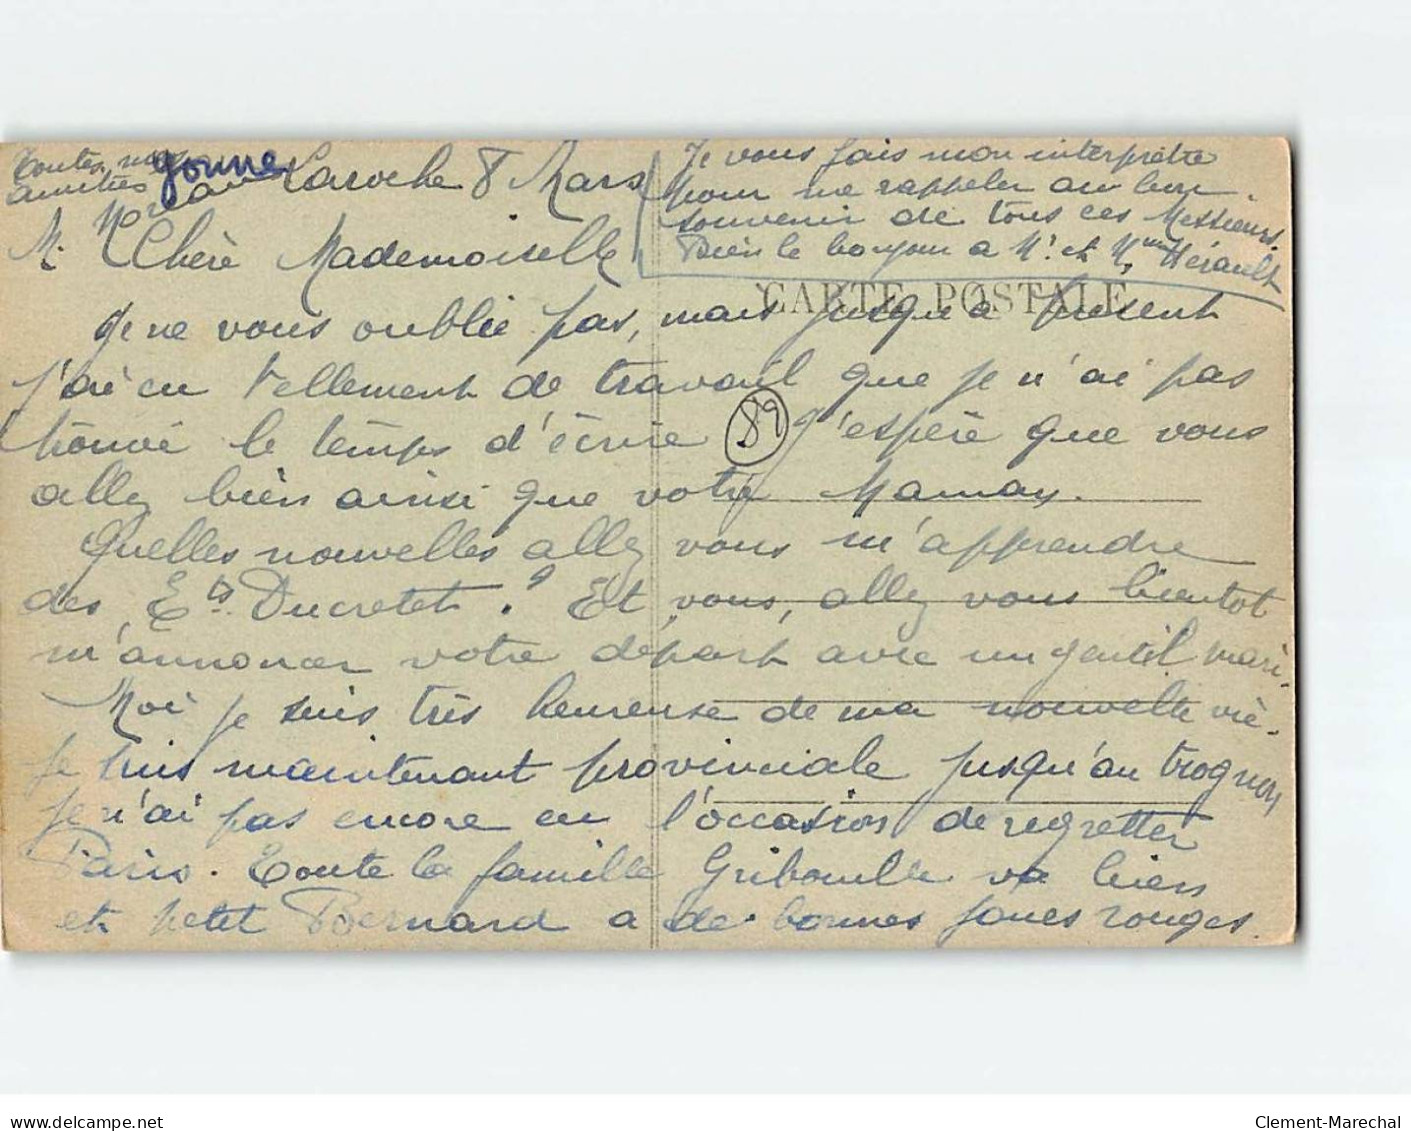 Laroche 8 Mars
Chère Mademoiselle
Je ne vous oublie pas, mais jusqu'à présent
j'ai eu tellement de travail que je n'ai pas
trouvé le temps d'écrire J'espère que vous
allez bien ainsi que votre Maman.
Quelles nouvelles allez vous m'apprendre
des Ets Ducretet ? Et vous, allez vous bientôt
m'annoncer votre départ avec un gentil mari.
Moi je suis très heureuse de ma nouvelle vie.
Je suis maintenant provinciale jusqu'au trognon
je n'ai pas encore eu l'occasion de regretter
Paris. Toute la famille Gribouille va bien
et petit Bernard a de bonnes joues rouges.
Toutes nos
amitiés
M.
Yonne
Je vous fais mon interprète
pour me rappeler au bon
souvenir de tous ces Messieurs.
Bien le bonjour à Mr et Mme Hérault
CARTE POSTALE
89
delcampe.net
Clement-Marechal